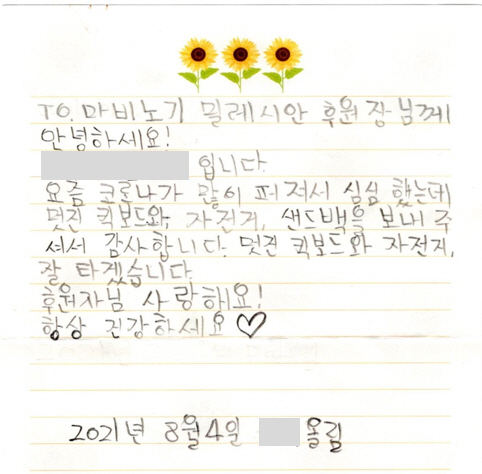 TO. 마비노기 밀레시안 후원장님께
안녕하세요!
입니다.
요즘 코로나가 많이 퍼져서 심심했는데
멋진 킥보드와, 자전거, 샌드백을 보내 주
셔서 감사합니다. 멋진 킥보드와 자전거,
잘 타겠습니다.
후원자님 사랑해요!
항상 건강하세요♡
2021년 8월4일 올림